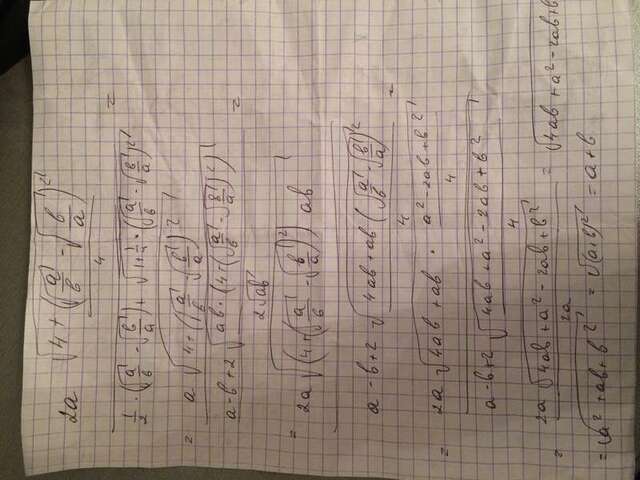 2a √(4 + (√(a/b) - √(b/a))²/4)
/ (1/2 · (√(a/b) - √(b/a)) + √(1 + 1/4 · (√(a/b) - √(b/a))²)) =
= a √(4 + (√(a/b) - √(b/a))²)
/ ((a - b + 2 √(ab · (4 + (√(a/b) - √(b/a))²)/4)) / (2√ab)) =
= 2a √((4 + (√(a/b) - √(b/a))²) ab)
/ (a - b + 2 √((4ab + ab (√(a/b) - √(b/a))²)/4)) =
= 2a √(4ab + ab · (a² - 2ab + b²)/4)
/ (a - b + 2 √((4ab + a² - 2ab + b²)/4))
= 2a √(4ab + a² - 2ab + b²) / 2a = √(4ab + a² - 2ab + b
= √(a² + ab + b²) = √(a+b)² = a + b